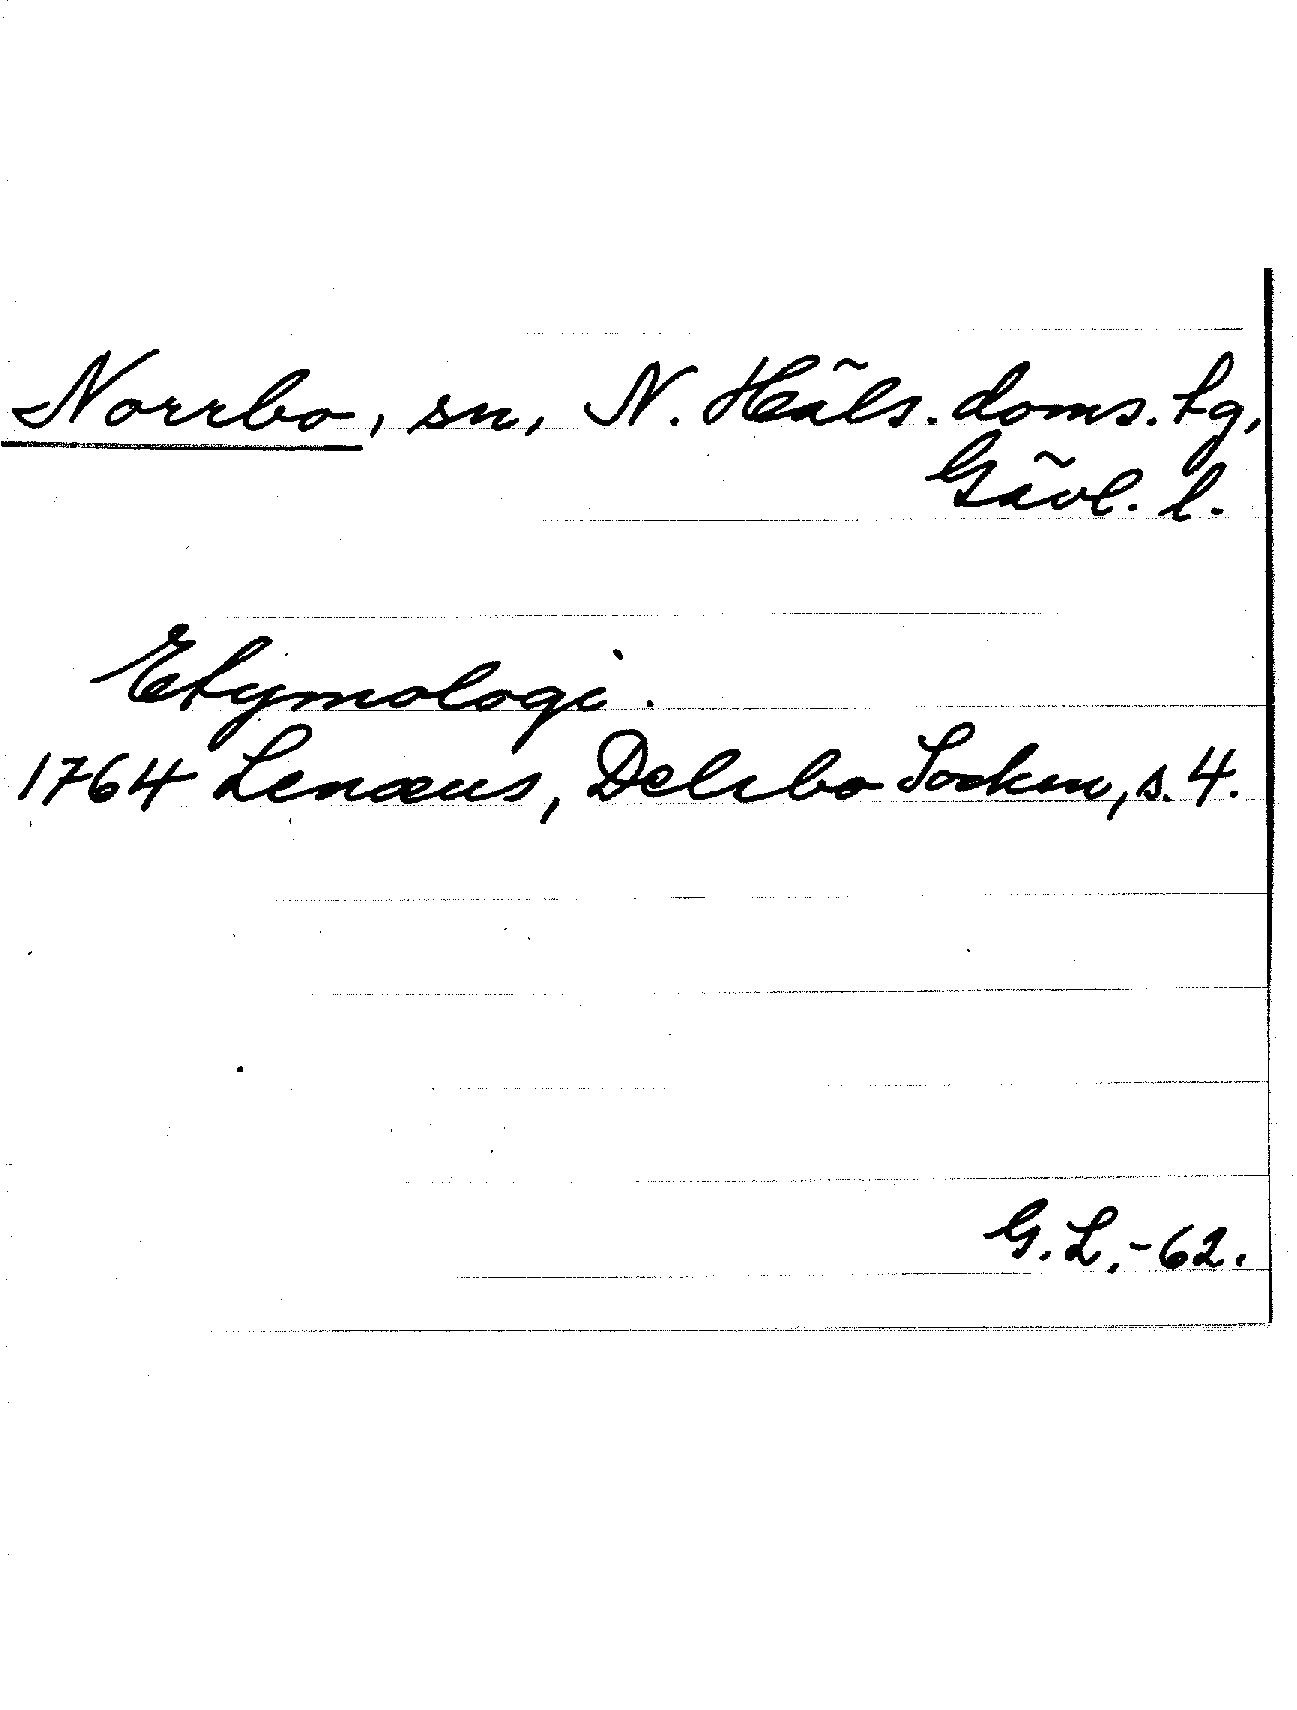 Norrbo, sn, N. Häls. doms. tg,
Gävl. l.
Etymologi.
1764 Lenæus, Delsbo Socken, s. 4.
G. L. -62.